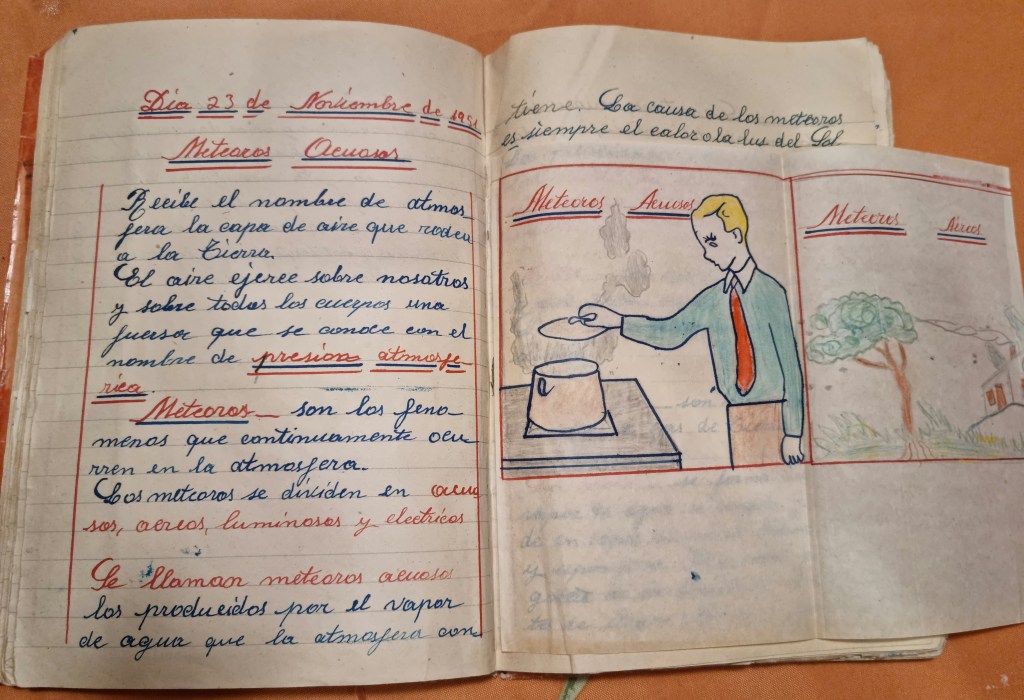 Día 23 de Noviembre de 1951
Meteoros Acuosos
Recibe el nombre de atmos
fera la capa de aire que rodea
a la Tierra.
El aire ejerce sobre nosotros
y sobre todos los cuerpos una
fuersa que se conoce con el
nombre de presion atmosfe-
rica.
Meteoros son los feno-
menos que continuamente ocu-
rren en la atmosfera.
Los meteoros se dividen en acuo
sos, aereos, luminosos y electricos
Se llaman meteoros acuosos
los producidos por el vapor
de agua que la atmosfera con-
tiene. La causa de los meteoros
es siempre el calor o la lus del Sol
Meteoros Acuosos
Meteoros Aéreos